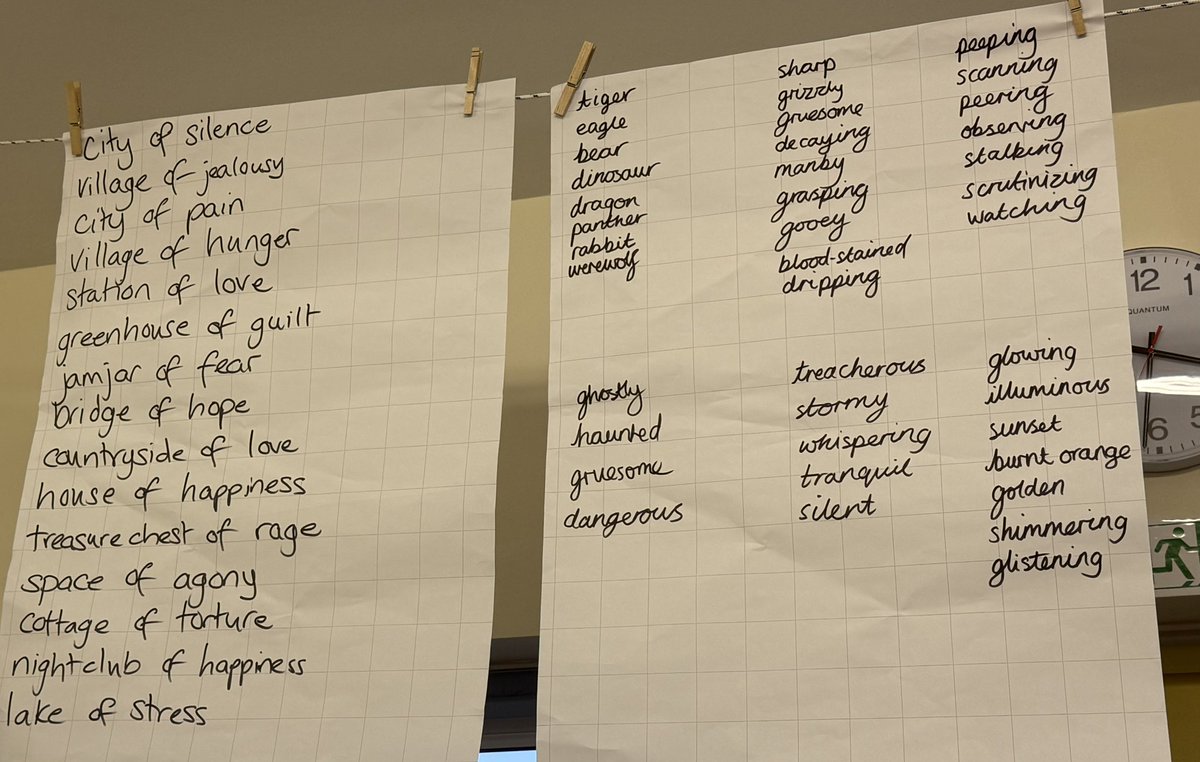 City of silence
village of jealousy
city of pain
village of hunger
station of love
greenhouse of guilt
jamjar of fear
bridge of hope
countryside of love
house of happiness
treasure chest of rage
space of agony
cottage of torture
nightclub of happiness
lake of stress
tiger
eagle
bear
dinosaur
dragon
panther
rabbit
werewolf
sharp
grizzly
gruesome
decaying
manby
grasping
gooey
blood-stained
dripping
peeping
scanning
peering
observing
stalking
scrutinizing
watching
ghostly
haunted
gruesome
dangerous
treacherous
stormy
whispering
tranquil
silent
glowing
illuminous
sunset
burnt orange
golden
shimmering
glistening
12
1
QUANTUM
6
5